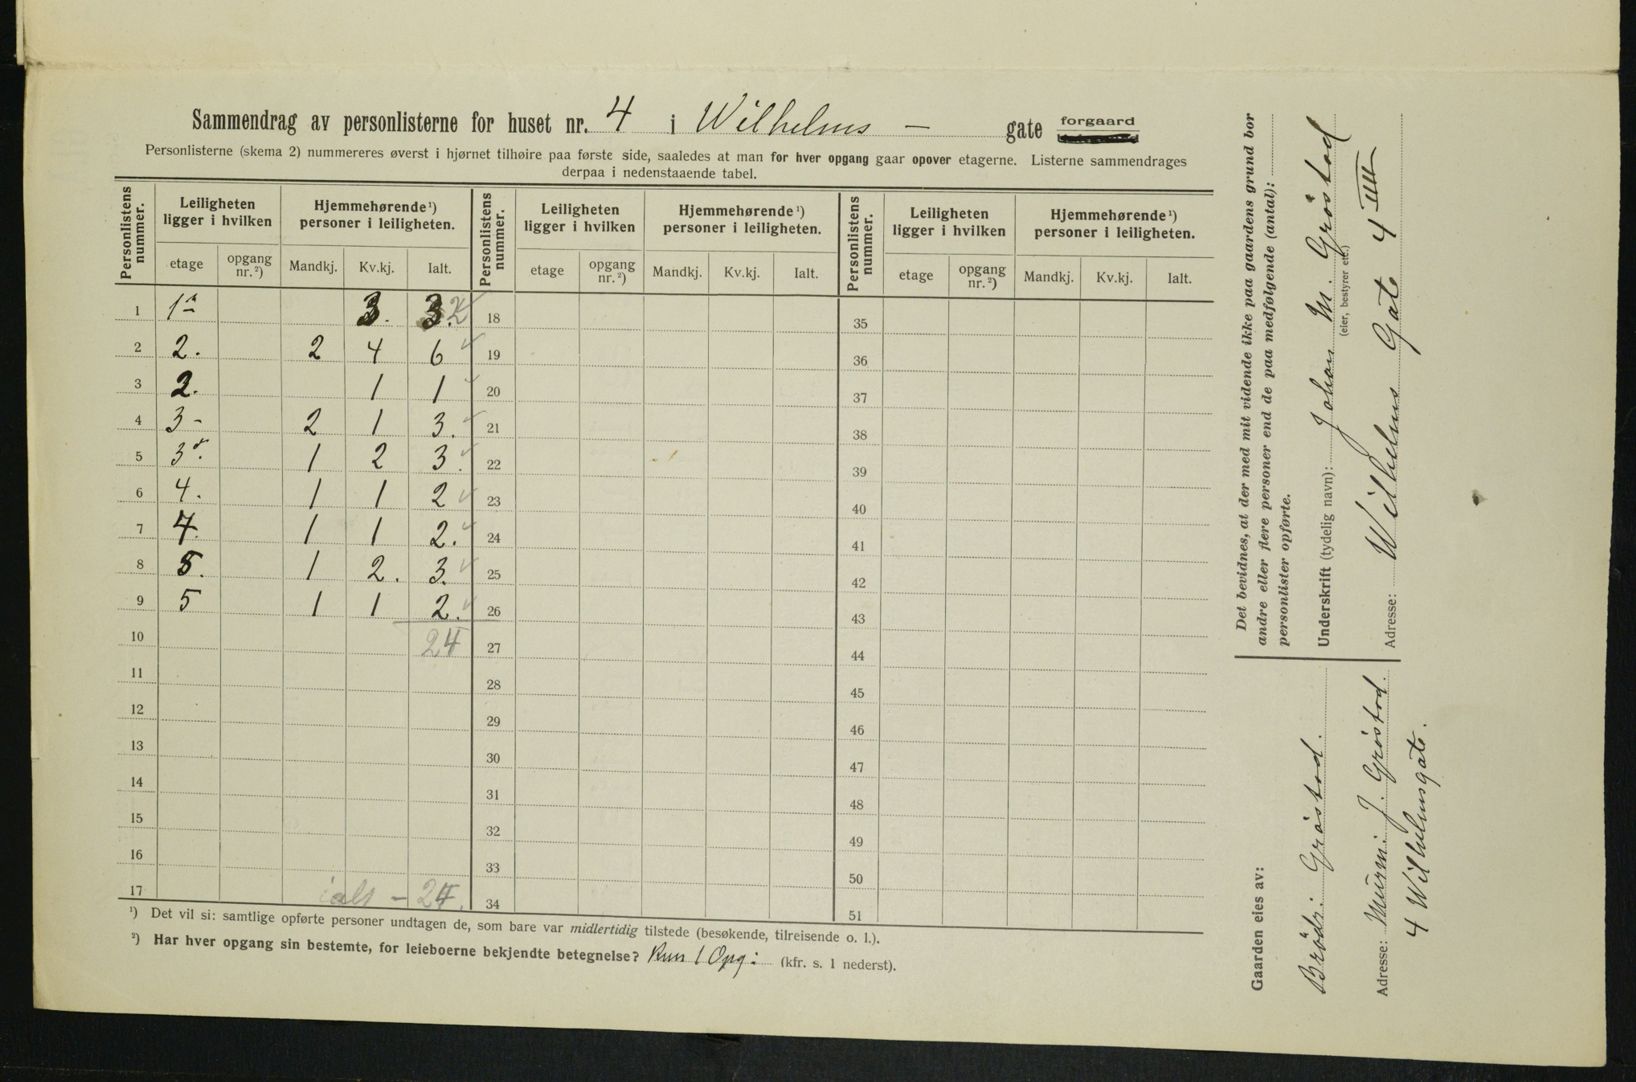 Sammendrag av personlisterne for huset nr. 4 i Wilhelms - gate forgaard
Personlisterne (skema 2) nummereres øverst i hjørnet tilhøire paa første side, saaledes at man for hver opgang gaar opover etagerne. Listerne sammendrages
derpaa i nedenstaaende tabel.
Personlistens nummer. | Leiligheten ligger i hvilken | Hjemmehørende ¹) personer i leiligheten. | Personlistens nummer. | Leiligheten ligger i hvilken | Hjemmehørende ¹) personer i leiligheten. | Personlistens nummer. | Leiligheten ligger i hvilken | Hjemmehørende ¹) personer i leiligheten.
etage | opgang nr. ²) | Mandkj. | Kv.kj. | Ialt. | etage | opgang nr. ²) | Mandkj. | Kv.kj. | Ialt. | etage | opgang nr. ²) | Mandkj. | Kv.kj. | Ialt.
1 | 1ª | | 3. | 3. 2 | 18 | 35
2 | 2. | 2 | 4 | 6 | 19 | 36
3 | 2. | | 1 | 1 | 20 | 37
4 | 3- | 2 | 1 | 3. | 21 | 38
5 | 3. | 1 | 2 | 3. | 22 | 39
6 | 4. | 1 | 1 | 2 | 23 | 40
7 | 4. | 1 | 1 | 2. | 24 | 41
8 | 5. | 1 | 2. | 3. | 25 | 42
9 | 5 | 1 | 1 | 2. | 26 | 43
10 | 24 | 27 | 44
11 | 28 | 45
12 | 29 | 46
13 | 30 | 47
14 | 31 | 48
15 | 32 | 49
16 | 33 | 50
17 | ialt - 24. | 34 | 51
¹) Det vil si: samtlige opførte personer undtagen de, som bare var midlertidig tilstede (besøkende, tilreisende o. l.).
²) Har hver opgang sin bestemte, for leieboerne bekjendte betegnelse? Kun 1 Opg: (kfr. s. 1 nederst).
Det bevidnes, at der med mit vidende ikke paa gaardens grund bor
andre eller flere personer end de paa medfølgende (antal):
personlister opførte.
Underskrift (tydelig navn): Johan M. Gröstad
(eier, bestyrer etc.)
Adresse: Wilhelms Gate 4 IIII
Gaarden eies av:
Brödr: Gröstad.
Adresse: Murm: J. Gröstad.
4 Wilhelmsgate.